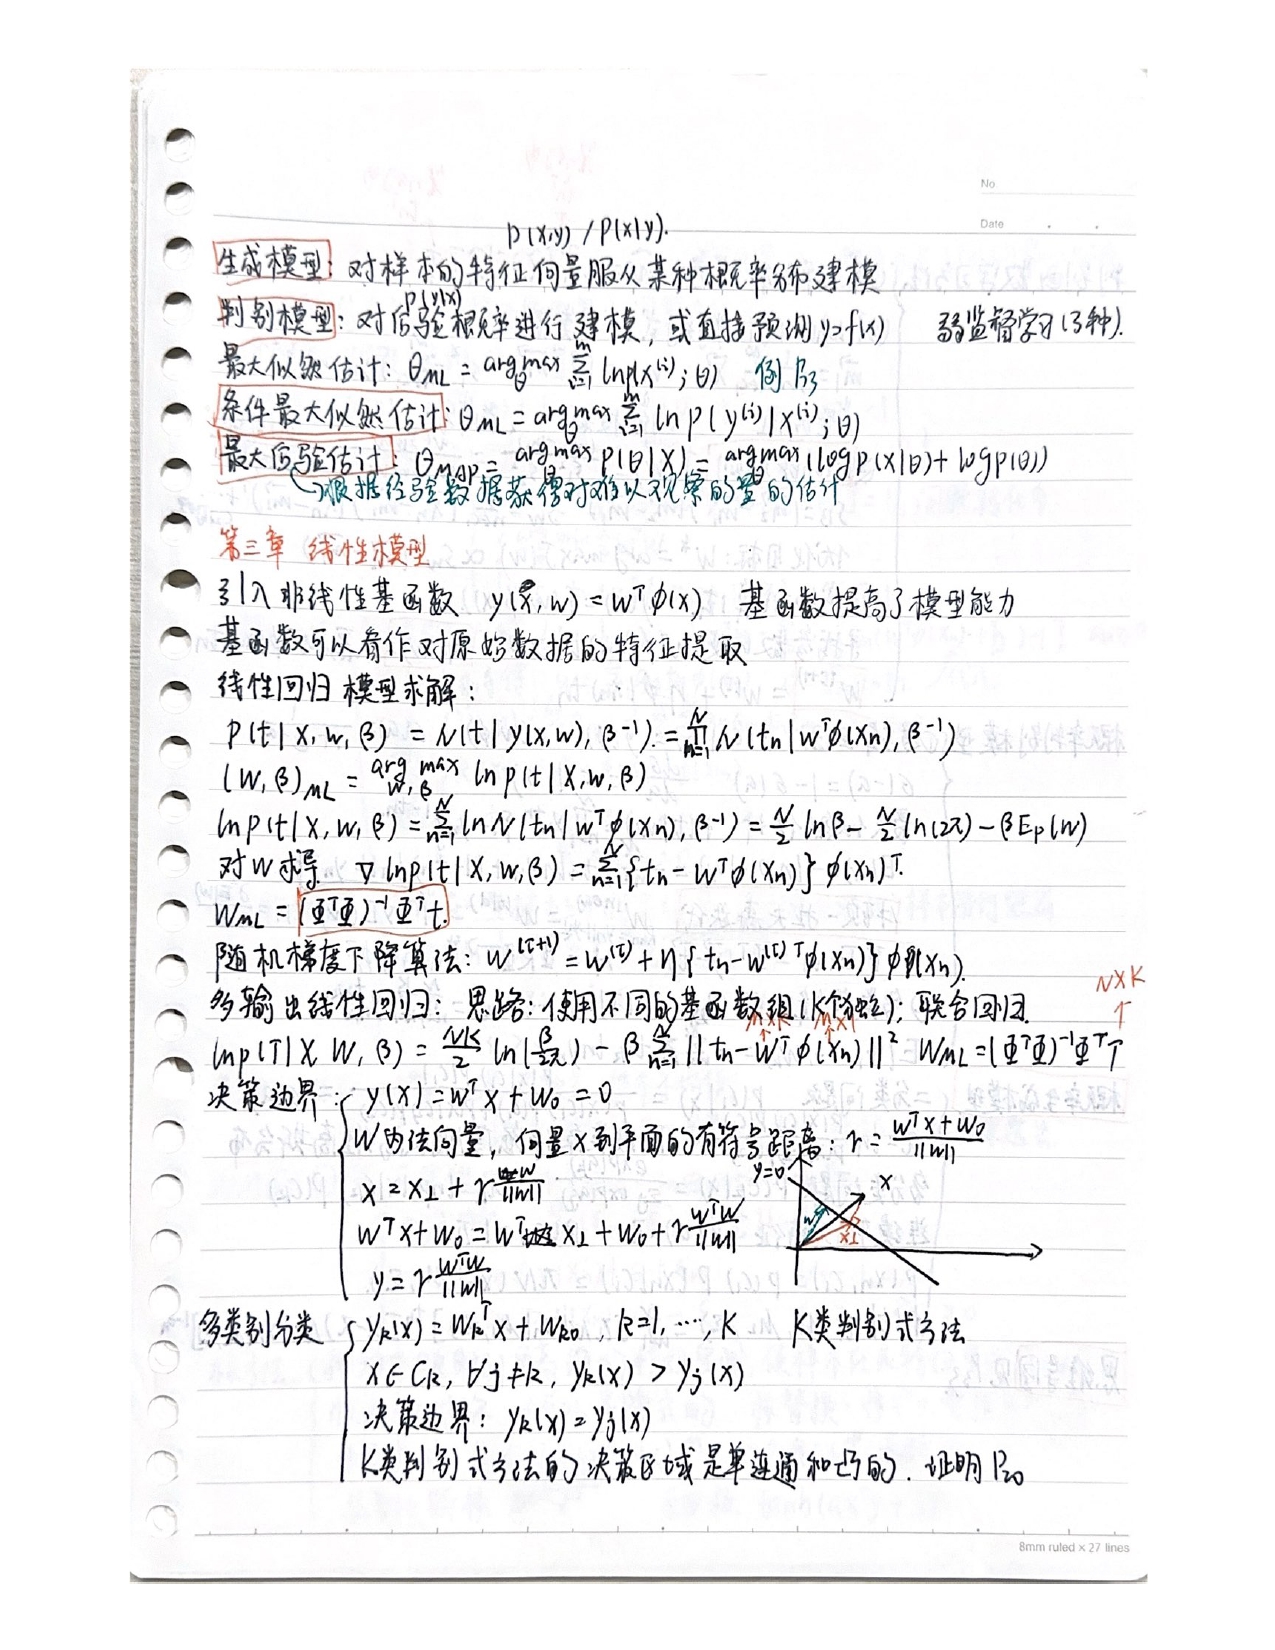 No.
Date
p(x,y) / p(x|y).
生成模型: 对样本的特征向量服从某种概率分布建模
p(y|x)
判别模型: 对后验概率进行建模, 或直接预测y=f(x) 弱监督学习(3种).
最大似然估计: θ_ML = argmax_θ Σ_{i=1}^m ln p(x^(i); θ) 例 P₁₃
条件最大似然估计: θ_ML = argmax_θ Σ_{i=1}^m ln p(y^(i)|x^(i); θ)
最大后验估计: θ_MAP = argmax_θ p(θ|X) = argmax_θ (log p(X|θ) + log p(θ))
↪根据经验数据获得对难以观察的量的估计
第三章 线性模型
引入非线性基函数 y(x,w) = wᵀφ(x) 基函数提高了模型能力
基函数可以看作对原始数据的特征提取
线性回归模型求解:
p(t|X,w,β) = N(t|y(x,w), β⁻¹) = Π_{n=1}^N N(tn|wᵀφ(xn), β⁻¹)
(w,β)_ML = argmax_{w,β} ln p(t|X,w,β)
ln p(t|X,w,β) = Σ_{n=1}^N ln N(tn|wᵀφ(xn), β⁻¹) = N/2 lnβ - N/2 ln(2π) - βE_D(w)
对w求导 ∇ ln p(t|X,w,β) = Σ_{n=1}^N {tn - wᵀφ(xn)} φ(xn)ᵀ.
w_ML = (ΦᵀΦ)⁻¹Φᵀt.
随机梯度下降算法: w^(τ+1) = w^(τ) + η{tn - w^(τ)ᵀφ(xn)}φ(xn).
N×K
多输出线性回归: 思路: 使用不同的基函数组(K个独立); 联合回归. ↑
M×K M×1
↑ ↑
ln p(T|X,W,β) = NK/2 ln(β/2π) - β Σ_{n=1}^N ||tn - Wᵀφ(xn)||² W_ML = (ΦᵀΦ)⁻¹ΦᵀT
决策边界: y(x) = wᵀx + w₀ = 0
w为法向量, 向量x到平面的有符号距离: r = (wᵀx + w₀)/||w||
x = x⊥ + r w/||w||
y=0
x
w
x⊥
wᵀx + w₀ = wᵀx⊥ + w₀ + r wᵀw/||w||
y = r wᵀw/||w||
多类别分类 yk(x) = wkᵀx + wk0, k=1, ···, K K类判别式方法
x∈Ck, ∀j≠k, yk(x) > yj(x)
决策边界: yk(x) = yj(x)
K类判别式方法的决策区域是单连通和凸的. 证明P₂₀
8mm ruled × 27 lines